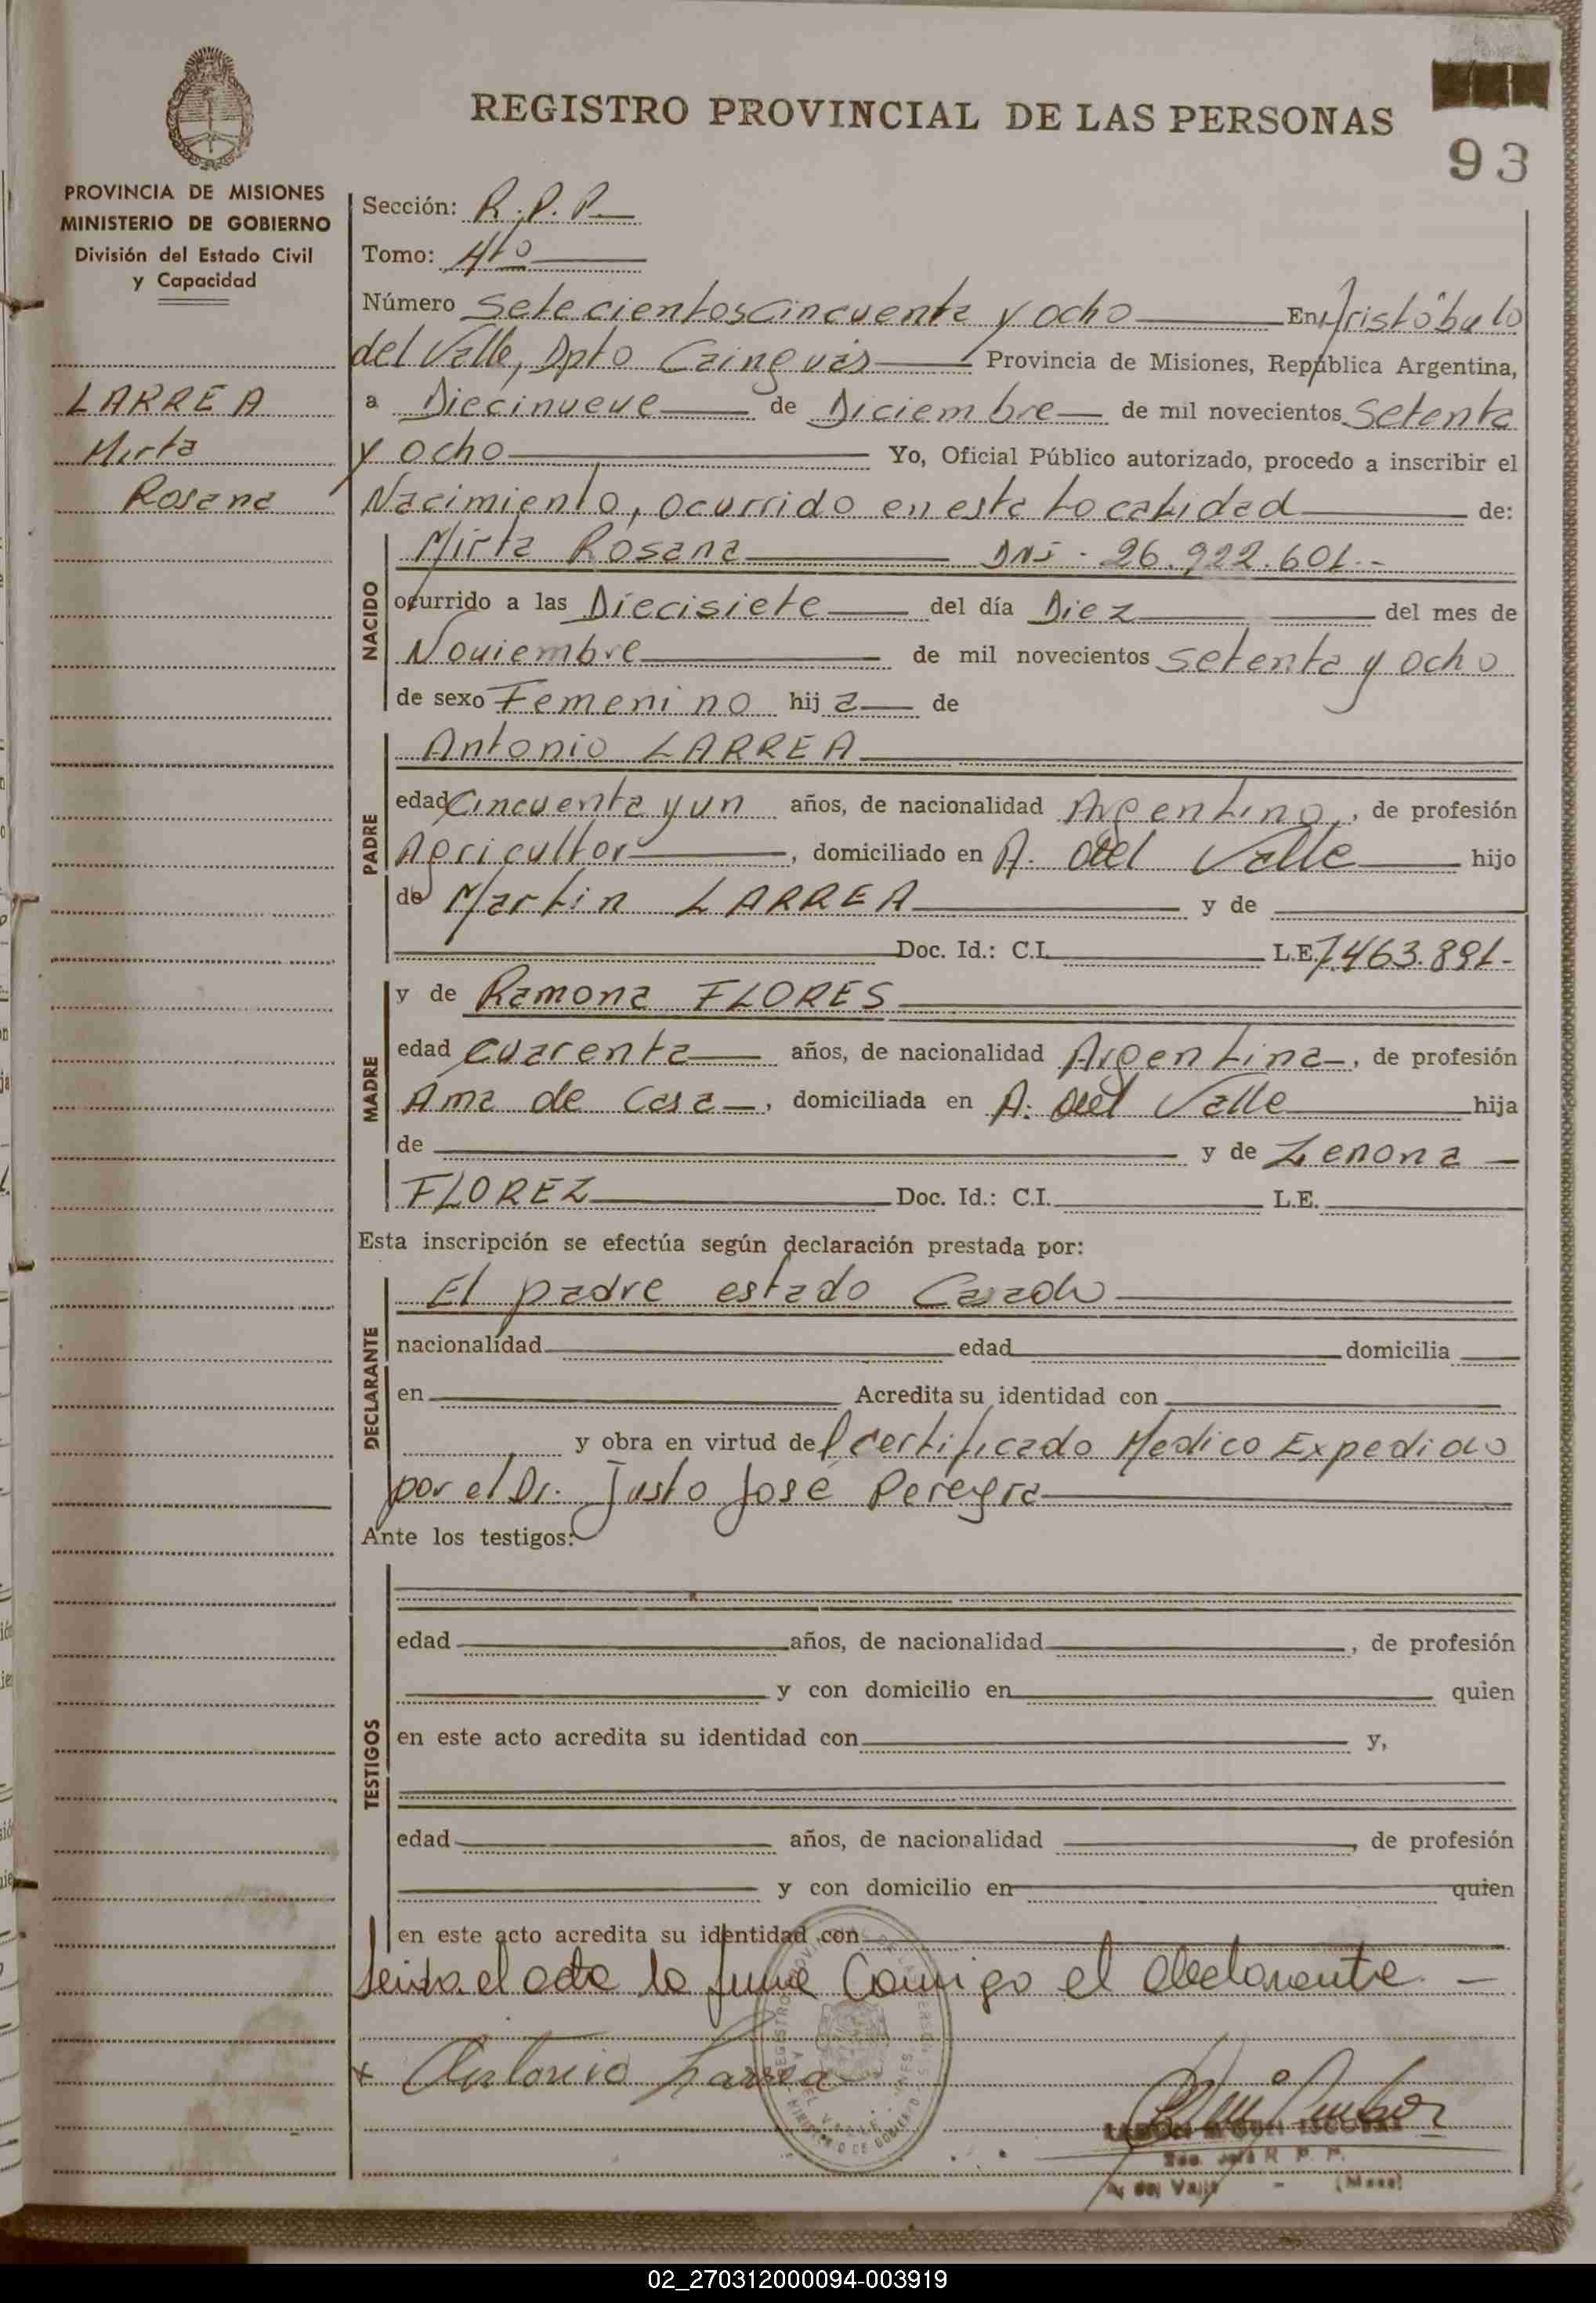 REGISTRO PROVINCIAL DE LAS PERSONAS
93
PROVINCIA DE MISIONES
MINISTERIO DE GOBIERNO
División del Estado Civil
y Capacidad
LARREA
Mirta
Rosana
Sección: R.P.P.
Tomo: 4to
Número Setecientos cincuenta y ocho En Aristóbulo
del Valle, Dpto Cainguás Provincia de Misiones, República Argentina,
a Diecinueve de Diciembre de mil novecientos Setenta
y ocho Yo, Oficial Público autorizado, procedo a inscribir el
Nacimiento, ocurrido en esta Localidad de:
NACIDO
Mirta Rosana DNI - 26.922.601.-
ocurrido a las Diecisiete del día Diez del mes de
Noviembre de mil novecientos setenta y ocho
de sexo Femenino hij a de
PADRE
Antonio LARREA
edad Cincuenta y un años, de nacionalidad Argentino, de profesión
Agricultor, domiciliado en A. del Valle hijo
de Martin LARREA y de
Doc. Id.: C.I. L.E. 7.463.891-
MADRE
y de Ramona FLORES
edad cuarenta años, de nacionalidad Argentina, de profesión
Ama de casa, domiciliada en A. del Valle hija
de y de Zenona
FLOREZ Doc. Id.: C.I. L.E.
Esta inscripción se efectúa según declaración prestada por:
DECLARANTE
El padre estado Casado
nacionalidad edad domicilia
en Acredita su identidad con
y obra en virtud del certificado Medico Expedido
por el Dr. Justo José Pereyra
Ante los testigos:
TESTIGOS
edad años, de nacionalidad, de profesión
y con domicilio en quien
en este acto acredita su identidad con y,
edad años, de nacionalidad, de profesión
y con domicilio en quien
en este acto acredita su identidad con
Leida el acta la firma Conmigo el declarante. -
x Antonio Larrea
R P P.
del Valle - (Mnes)
02_270312000094-003919